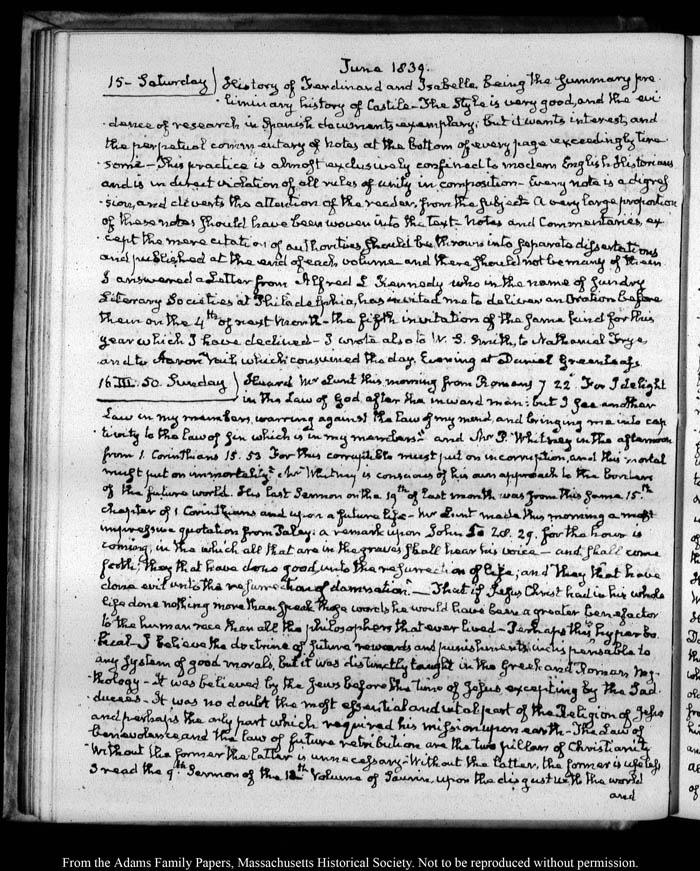 June 1839.
15 - Saturday) History of Ferdinand and Isabella. being the Summary pre-
-liminary history of Castile - The Style is very good, and the evi-
-dence of research in Spanish documents exemplary; but it wants interest, and
the perpetual commentary of notes at the bottom of every page exceedingly tire-
some - This practice is almost exclusively confined to modern English Historians
and is in direct violation of all rules of unity in composition - Every note is a digres-
-sion, and diverts the attention of the reader, from the subject. A very large proportion
of these notes should have been woven into the text. Notes and Commentaries, ex-
cept the mere citation of authorities, should be thrown into separate dissertations
and published at the end of each volume and there should not be many of them
I answered a Letter from Alfred L Kennedy who in the name of sundry
Literary Societies at Philadelphia, has invited me to deliver an Oration before
them on the 4th of next Month - the fifth invitation of the same kind for this
year which I have declined - I wrote also to W. S. Smith, to Nathaniel Frye
and to Aaron Vail, which consumed the day. Evening at Daniel Greenleafs
16. III:50. Sunday) Heard Mr Lunt this morning from Romans 7 22 For I delight
in the Law of God, after the inward man: but I see another
Law in my members, warring against the law of my mind, and bringing me into cap-
tivity to the law of sin which is in my members." and Mr P. Whitney in the afternoon
from 1. Corinthians 15. 53 For this corruptible must put on incorruption, and this mortal
must put on immortality" Mr Whitney is conscious of his own approach to the borders
of the future world. His last Sermon on the 19th of last month was from this same 15.th
chapter of 1 Corinthians and upon a future life - Mr Lunt made this morning a most
impressive quotation from Paley: a remark upon John 5. 28. 29. for the hour is
coming, in the which all that are in the graves shall hear his voice - and shall come
forth; they that have done good unto the resurrection of life; and they that have
done evil unto the resurrection of damnation" - That if Jesus Christ had in his whole
life done nothing more than speak those words he would have been a greater benefactor
to the human race than all the philosophers that ever lived - Perhaps this is hyperbo-
lical - I believe the doctrine of future rewards and punishments indispensable to
any System of good morals, but it was distinctly taught in the Greek and Roman My-
thology - It was believed by the Jews before the time of Jesus excepting by the Sad-
ducees - It was no doubt the most essential and vital part of the Religion of Jesus
and perhaps the only part which required his mission upon earth - The Law of
benevolence and the law of future retribution are the two pillars of Christianity
Without the former the latter is unnecessary - Without the latter, the former is useless
I read the 9th Sermon of the 12th Volume of Saurin, upon the disgust with the world
and
From the Adams Family Papers, Massachusetts Historical Society. Not to be reproduced without permission.